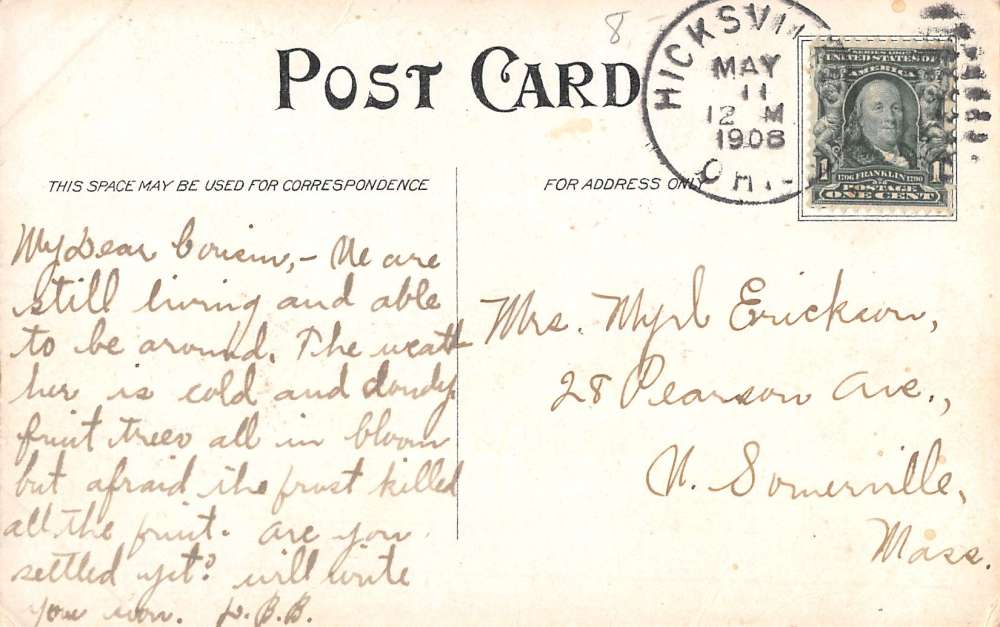 8
POST CARD
HICKSVILLE
MAY
11
12 M
1908
OHI.
UNITED STATES OF
AMERICA
1 1706 FRANKLIN 1790 1
POSTAGE
ONE CENT
THIS SPACE MAY BE USED FOR CORRESPONDENCE
FOR ADDRESS ONLY
My Dear Cousin,- We are
still living and able
to be around. The weat
her is cold and cloudy
fruit trees all in bloom
but afraid the frost killed
all the fruit. are you
settled yet? will write
you soon. L.B.B.
Mrs. Myrl Erickson,
28 Pearson Ave.,
W. Somerville,
Mass.